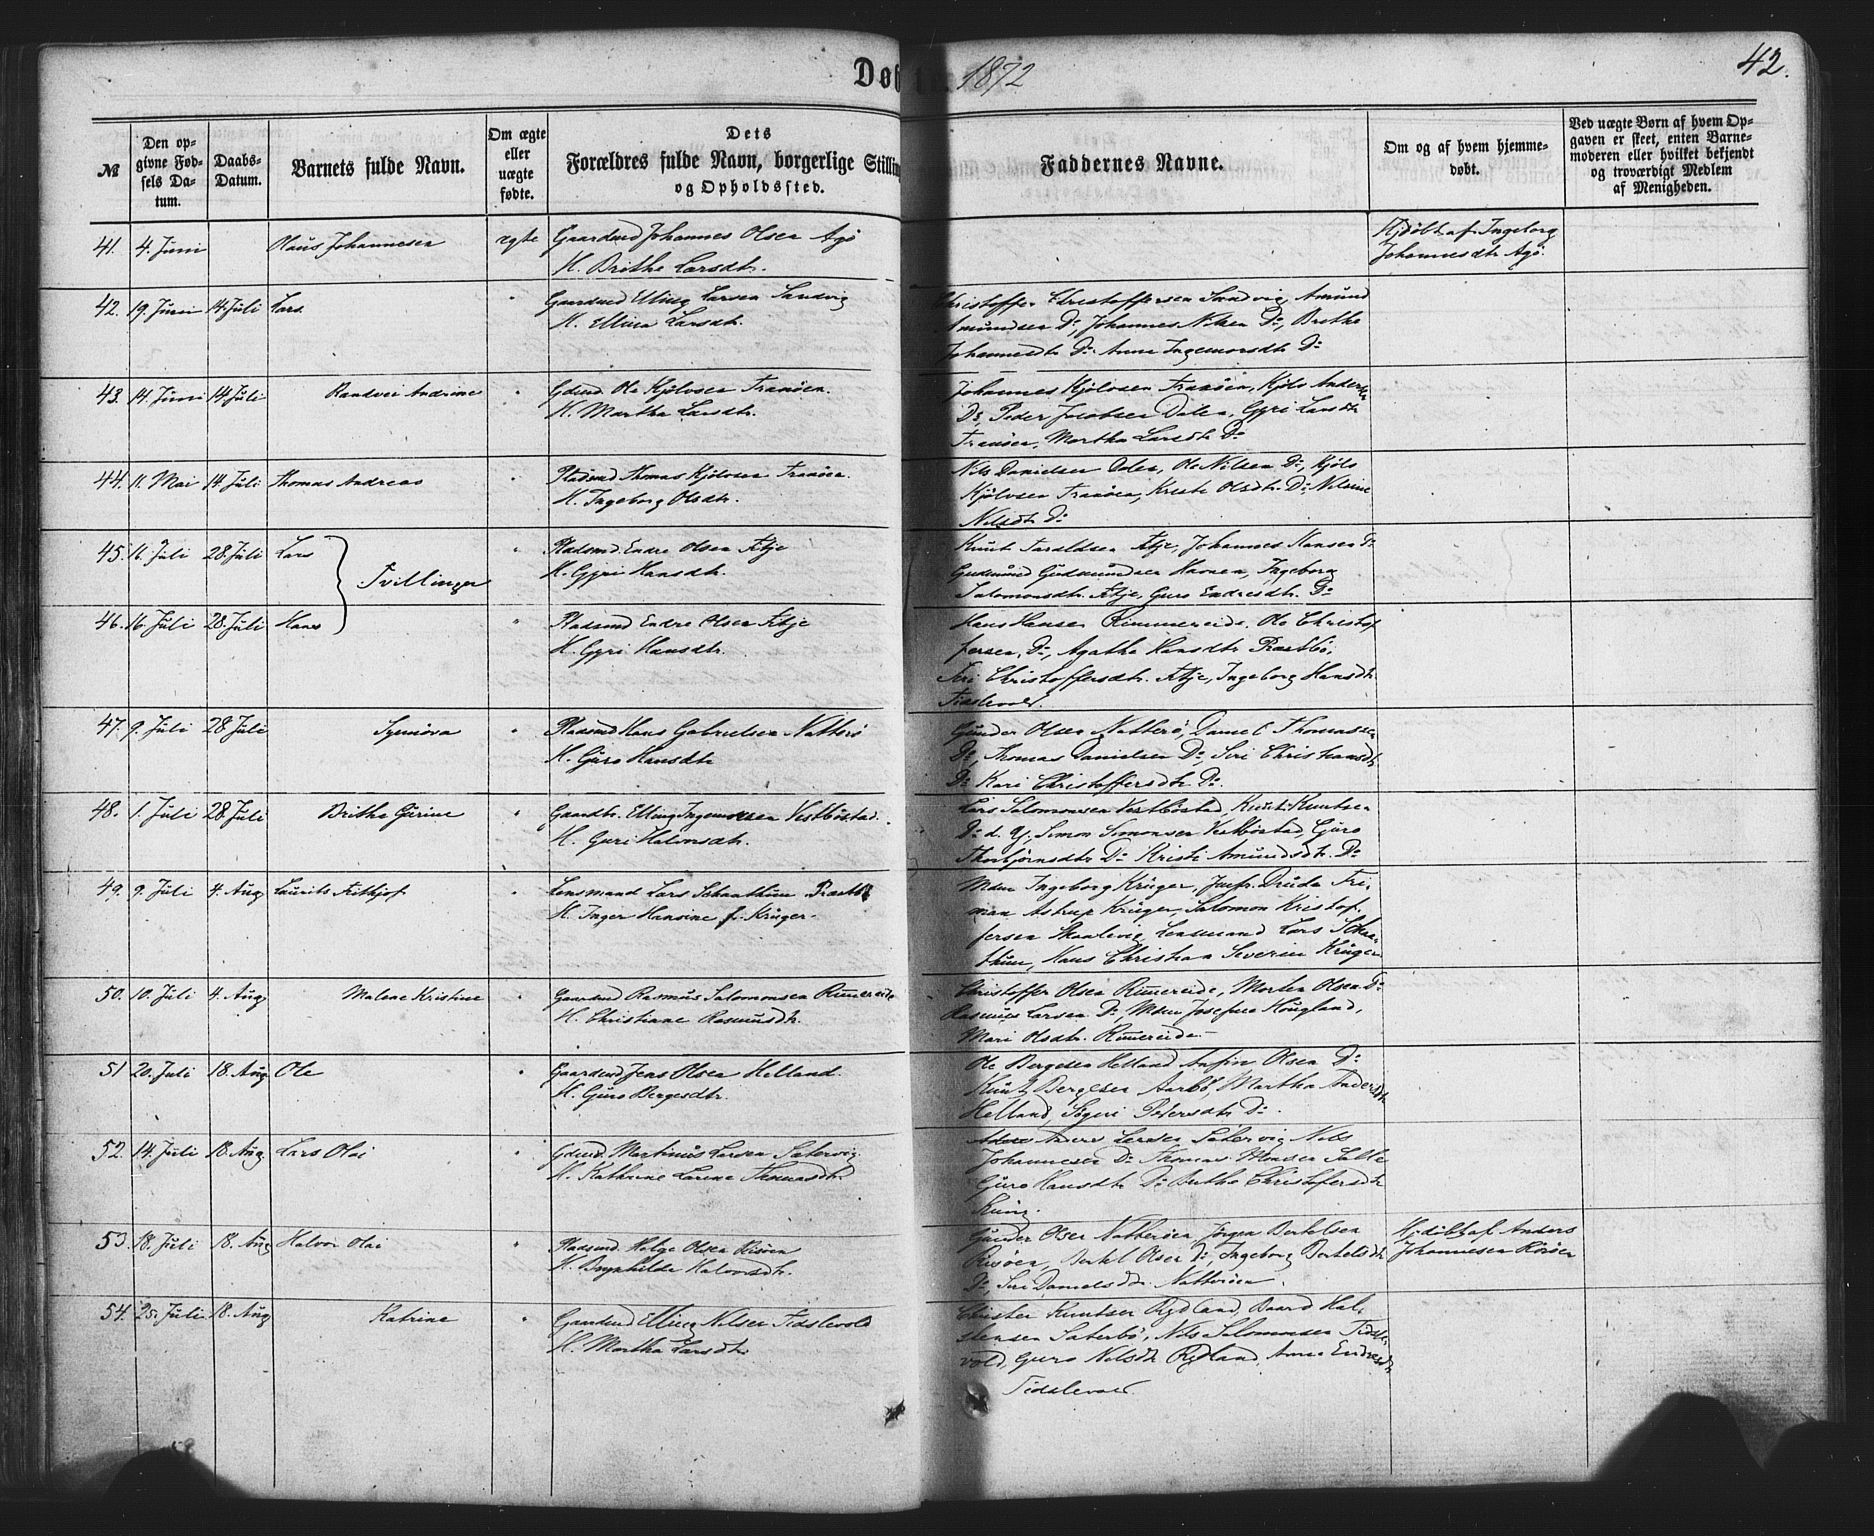 Døbte 1872
42.
№
Den opgivne Fødsels Datum.
Daabs-Datum.
Barnets fulde Navn.
Om ægte eller uægte fødte.
Dets Forældres fulde Navn, borgerlige Stilling og Opholdssted.
Faddernes Navne.
Om og af hvem hjemmedøbt.
Ved uægte Børn af hvem Opgaven er skeet, enten Barnemoderen eller hvilket bekjendt og troværdigt Medlem af Menigheden.
41. 4. Juni Olaus Johannesen ægte Gaardmd Johannes Olsen Agö
H. Brithe Larsdtr.
Hjdöbt af Ingeborg
Johannesdtr Agö.
42. 19. Juni 14. Juli Lars " Gaardmd Elling Larsen Sandvig
H. Ellina Larsdtr.
Christoffer Christoffersen Sandvig, Amund
Amundsen Do, Johannes Nilsen Do, Brithe
Johannesdtr Do Anne Ingemorsdtr Do
43. 14. Juni 14. Juli Randvei Andrine " Gdmd. Ole Kjölvsen Tranöen.
H. Martha Larsdtr.
Johannes Kjölvsen Tranöen, Kjölv Anders
Do, Peder Jacobsen Dalen, Gyri Larsdtr
Tranöen, Martha Larsdtr Do
44. 11. Mai 14. Juli Thomas Andreas " Pladsmd Thomas Kjölvsen Tranöen.
H. Ingeborg Olsdtr.
Nils Danielsen Dalen, Ole Nilsen Do, Kjölv
Kjölvsen Tranöen, Kristi Olsdtr. Do Nilsine
Nilsdtr Do
45. 16. Juli 28. Juli Lars " Pladsmd Endre Olsen Fitje
H. Gyri Hansdtr.
Tvillinger
Knut Taraldsen Fitje, Johannes Hansen Do
Gudmund Gudmundsen Havnen, Ingeborg
Salomonsdtr. Fitje, Guro Endresdtr. Do
46. 16. Juli 28. Juli Hans " Pladsmd Endre Olsen Fitje
H. Gyri Hansdtr.
Hans Hansen Rimmereide. Ole Christof
fersen, Do, Agatha Hansdtr Prestbö,
Siri Christoffersdtr. Fitje, Ingeborg Hansdtr.
Tislevold.
47. 9. Juli 28. Juli Synnöva " Pladsmd Hans Gabrielsen Natterö
H. Guro Hansdtr
Gunder Olsen Natterö, Daniel Thomassen
Do, Thomas Danielsen Do, Siri Christiansdtr
Do Kari Christoffersdtr. Do.
48. 1. Juli 28. Juli Brithe Gurine " Gaardbr. Elling Ingemorsen Vestböstad.
H. Guri Halvorsdtr.
Lars Salomonsen Vestböstad, Knut Knutsen
Do d. y, Simon Simonsen Vestböstad, Guro
Thorbjörnsdtr Do Kristi Amundsdtr. Do
49. 9. Juli 4. Aug Laurits Frithjof " Lensmand Lars Schanthun Præstbö
H. Inger Hansine f. Krüger.
Mdm Ingeborg Krüger, Jmfr. Druda Fri-
man Astrup Krüger, Salomon Kristof-
fersen Skaalevig Lensmand Lars Schan-
thun, Hans Christian Severin Krüger
50. 10. Juli 4. Aug. Malene Kristine " Gaardmd Rasmus Salomonsen Rimereide
H. Christiane Rasmusdtr.
Christoffer Olsen Rimereide, Morten Olsen Do
Rasmus Larsen Do, Mdm Josefine Hougland,
Mari Olsdtr. Rimereide.
51 20. Juli 18. Aug Ole " Gaardmd Jens Olsen Helland.
H. Guro Bergesdtr.
Ole Bergesen Helland Anfin Olsen Do
Knut Bergesen Aarbö, Martha Andersdtr
Helland, Sigeri Pedersdtr Do.
52. 14. Juli 18. Aug. Lars Olai " Gdmd. Martinus Larsen Sætervig
H. Kathrine Larine Thomasdtr.
Anders Larsen Sætervig Nils
Johannesen Do Thomas Monsen
Guro Hansdtr Do Brithe Christofersdtr
53. 18. Juli 18. Aug Halvor Olai " Pladsmd. Helge Olsen Risöen
H. Brynhilde Halvorsdtr.
Gunder Olsen Natteröen Jörgen Bertelsen
Risöen, Bertel Olsen Do, Ingeborg Bertelsdtr
Do, Siri Danielsdtr. Natteröen.
Hj. döbt af Anders
Johannesen Risöen
54. 25. Juli 18. Aug Katrine " Gaardmd Elling Nilsen Tidslevold
H. Martha Larsdtr
Christen Knutsen Rydland, Baard Hal-
stensen Sæterbö, Nils Salomonsen Tidsle
vold, Guro Nilsdtr Rydland, Anne Endresdtr
Tidslevold.